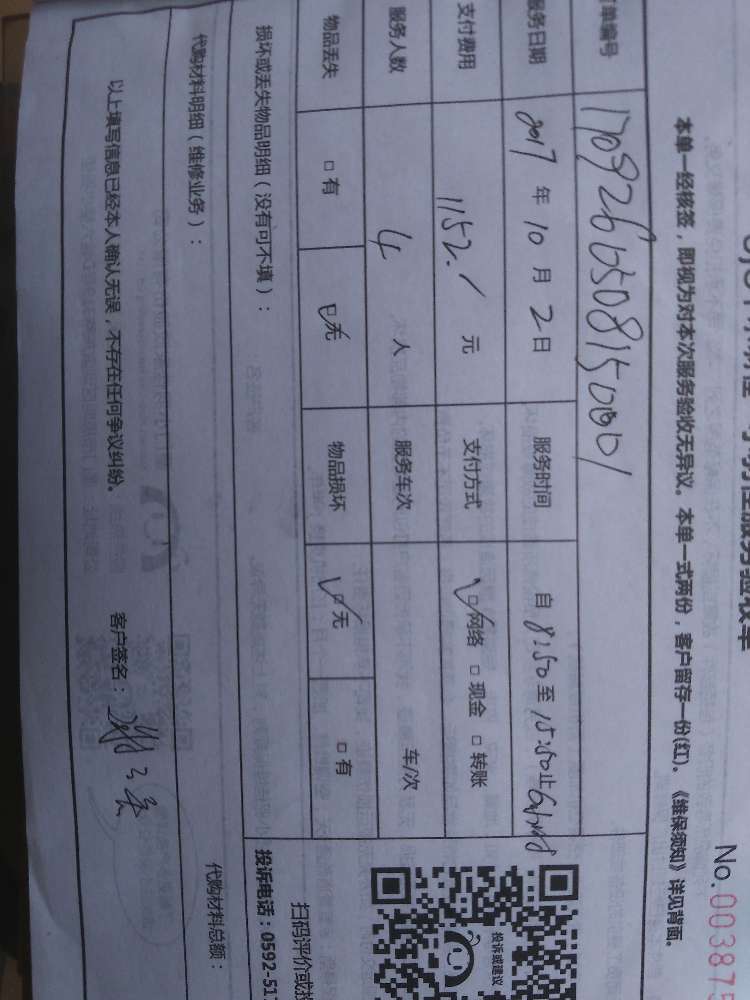 No.003875
本单一经核签，即视为对本次服务验收无异议。本单一式两份，客户留存一份(红)。《维保须知》详见背面。
单编号 1709260508150001
服务日期 2017 年 10 月 2 日 服务时间 自 8:50 至 15:50止
支付费用 1152. 元 支付方式 □网络 □现金 □转账
服务人数 4 人 服务车次 车/次
物品丢失 □有 □无 物品损坏 □无 □有
损坏或丢失物品明细（没有可不填）：
代购材料明细（维修业务）：
代购材料总额：
以上填写信息已经本人确认无误，不存在任何争议纠纷。 客户签名：
投诉或建议
扫码评价或投
投诉电话：0592-51